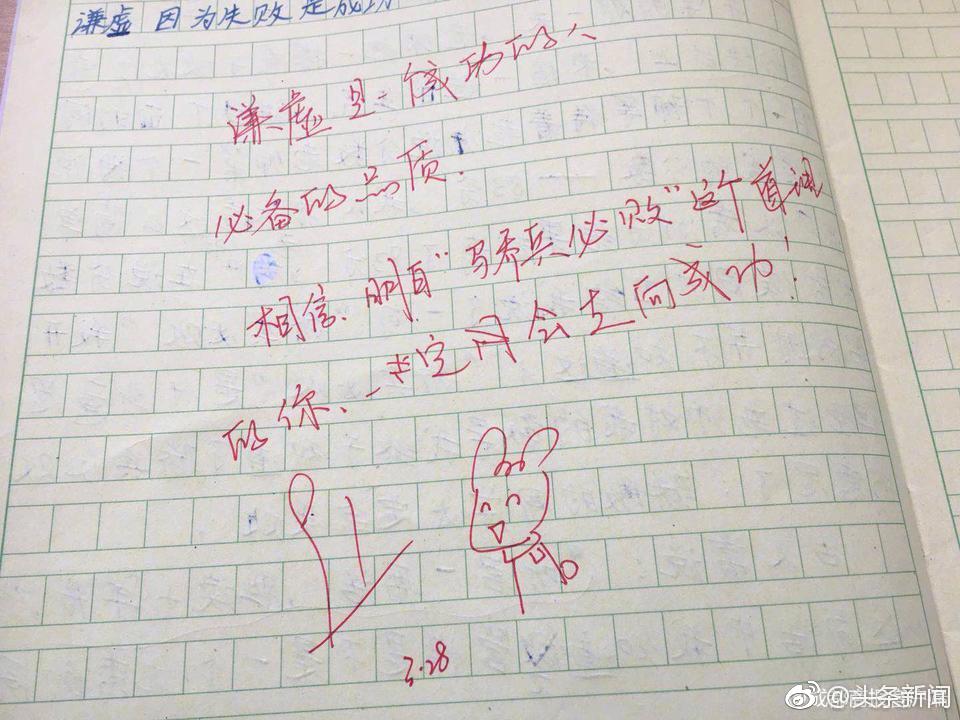 谦虚 因为失败是成功
谦虚是成功的人
必备的品质!
相信,明白“骄兵必败”这个道理
的你、一定会走向成功!
3.28
@头条新闻